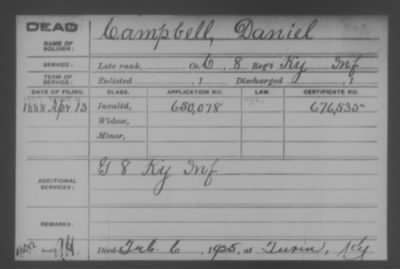 DEAD
NAME OF SOLDIER: Campbell, Daniel
SERVICE: Late rank, Co. C, 8 Reg't Ky Inf
TERM OF SERVICE: Enlisted , 1 Discharged , 1
DATE OF FILING. CLASS. APPLICATION NO. LAW. CERTIFICATE NO.
1888 Apr 13 Invalid, 650,078 676,535
Widow,
Minor,
ADDITIONAL SERVICES: G 8 Ky Inf
REMARKS:
Died Feb. 6, 1925, at Ky.